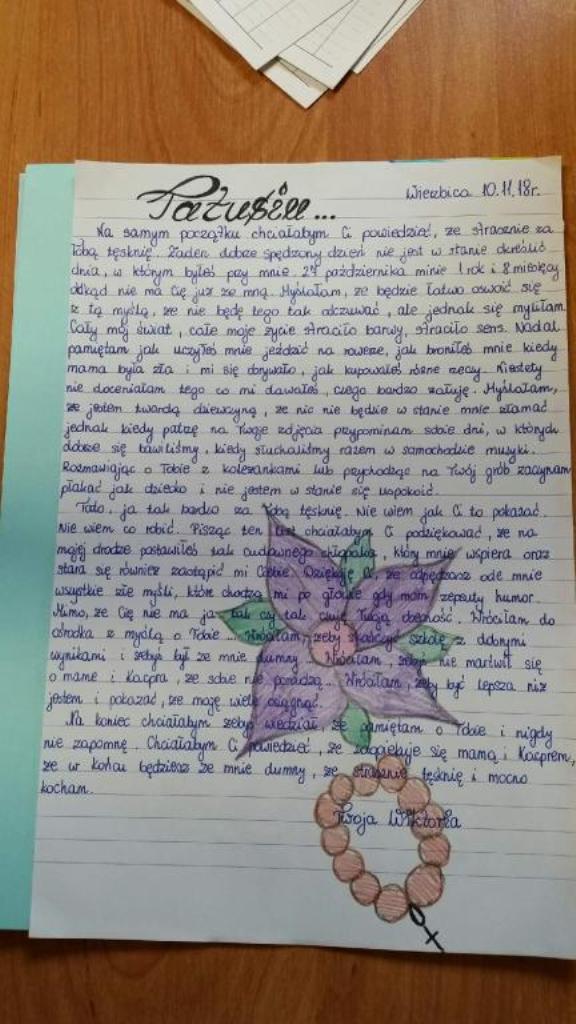 Tatusiu...
Wierzbica 10.11.18r.
Na samym początku chciałabym Ci powiedzieć, że strasznie za
Tobą tęsknię. Żaden dobrze spędzony dzień nie jest w stanie określić
dnia, w którym byłeś przy mnie. 27 października minie 1 rok i 8 miesięcy
odkąd nie ma Cię już ze mną. Myślałam, że będzie łatwo oswoić się
z tą myślą, że nie będę tego tak odczuwać, ale jednak się myliłam.
Cały mój świat, całe moje życie straciło barwy, straciło sens. Nadal
pamiętam jak uczyłeś mnie jeździć na rowerze, jak broniłeś mnie kiedy
mama była zła i mi się obrywało, jak kupowałeś różne rzeczy. Niestety
nie doceniałam tego co mi dawałeś, czego bardzo żałuję. Myślałam,
że jestem twardą dziewczyną, że nic nie będzie w stanie mnie złamać
jednak kiedy patrzę na Twoje zdjęcia przypominam sobie dni, w których
dobrze się bawiliśmy, kiedy słuchaliśmy razem w samochodzie muzyki.
Rozmawiając o Tobie z koleżankami lub przychodząc na Twój grób zaczynam
płakać jak dziecko i nie jestem w stanie się uspokoić.
Tato, ja tak bardzo za Tobą tęsknię. Nie wiem jak Ci to pokazać.
Nie wiem co robić. Pisząc ten list chciałabym Ci podziękować, że na
mojej drodze postawiłeś tak cudownego chłopaka, który mnie wspiera oraz
stara się również zastąpić mi Ciebie. Dziękuję Ci, że odpędzasz ode mnie
wszystkie złe myśli, które chodzą mi po głowie gdy mam zepsuty humor.
Mimo, że Cię nie ma ja tak czy tak czuję Twoją obecność. Wróciłam do
ośrodka z myślą o Tobie... Wróciłam, żeby skończyć szkołę z dobrymi
wynikami i żebyś był ze mnie dumny. Wróciłam, żebyś nie martwił się
o mamę i Kacpra, że sobie nie poradzą... Wróciłam, żeby być lepsza niż
jestem i pokazać, że mogę wiele osiągnąć.
Na koniec chciałabym żebyś wiedział, że pamiętam o Tobie i nigdy
nie zapomnę. Chciałabym Ci powiedzieć, że zaopiekuje się mamą i Kacprem,
że w końcu będziesz ze mnie dumny, że strasznie tęsknię i mocno
kocham.
Twoja Wiktorka